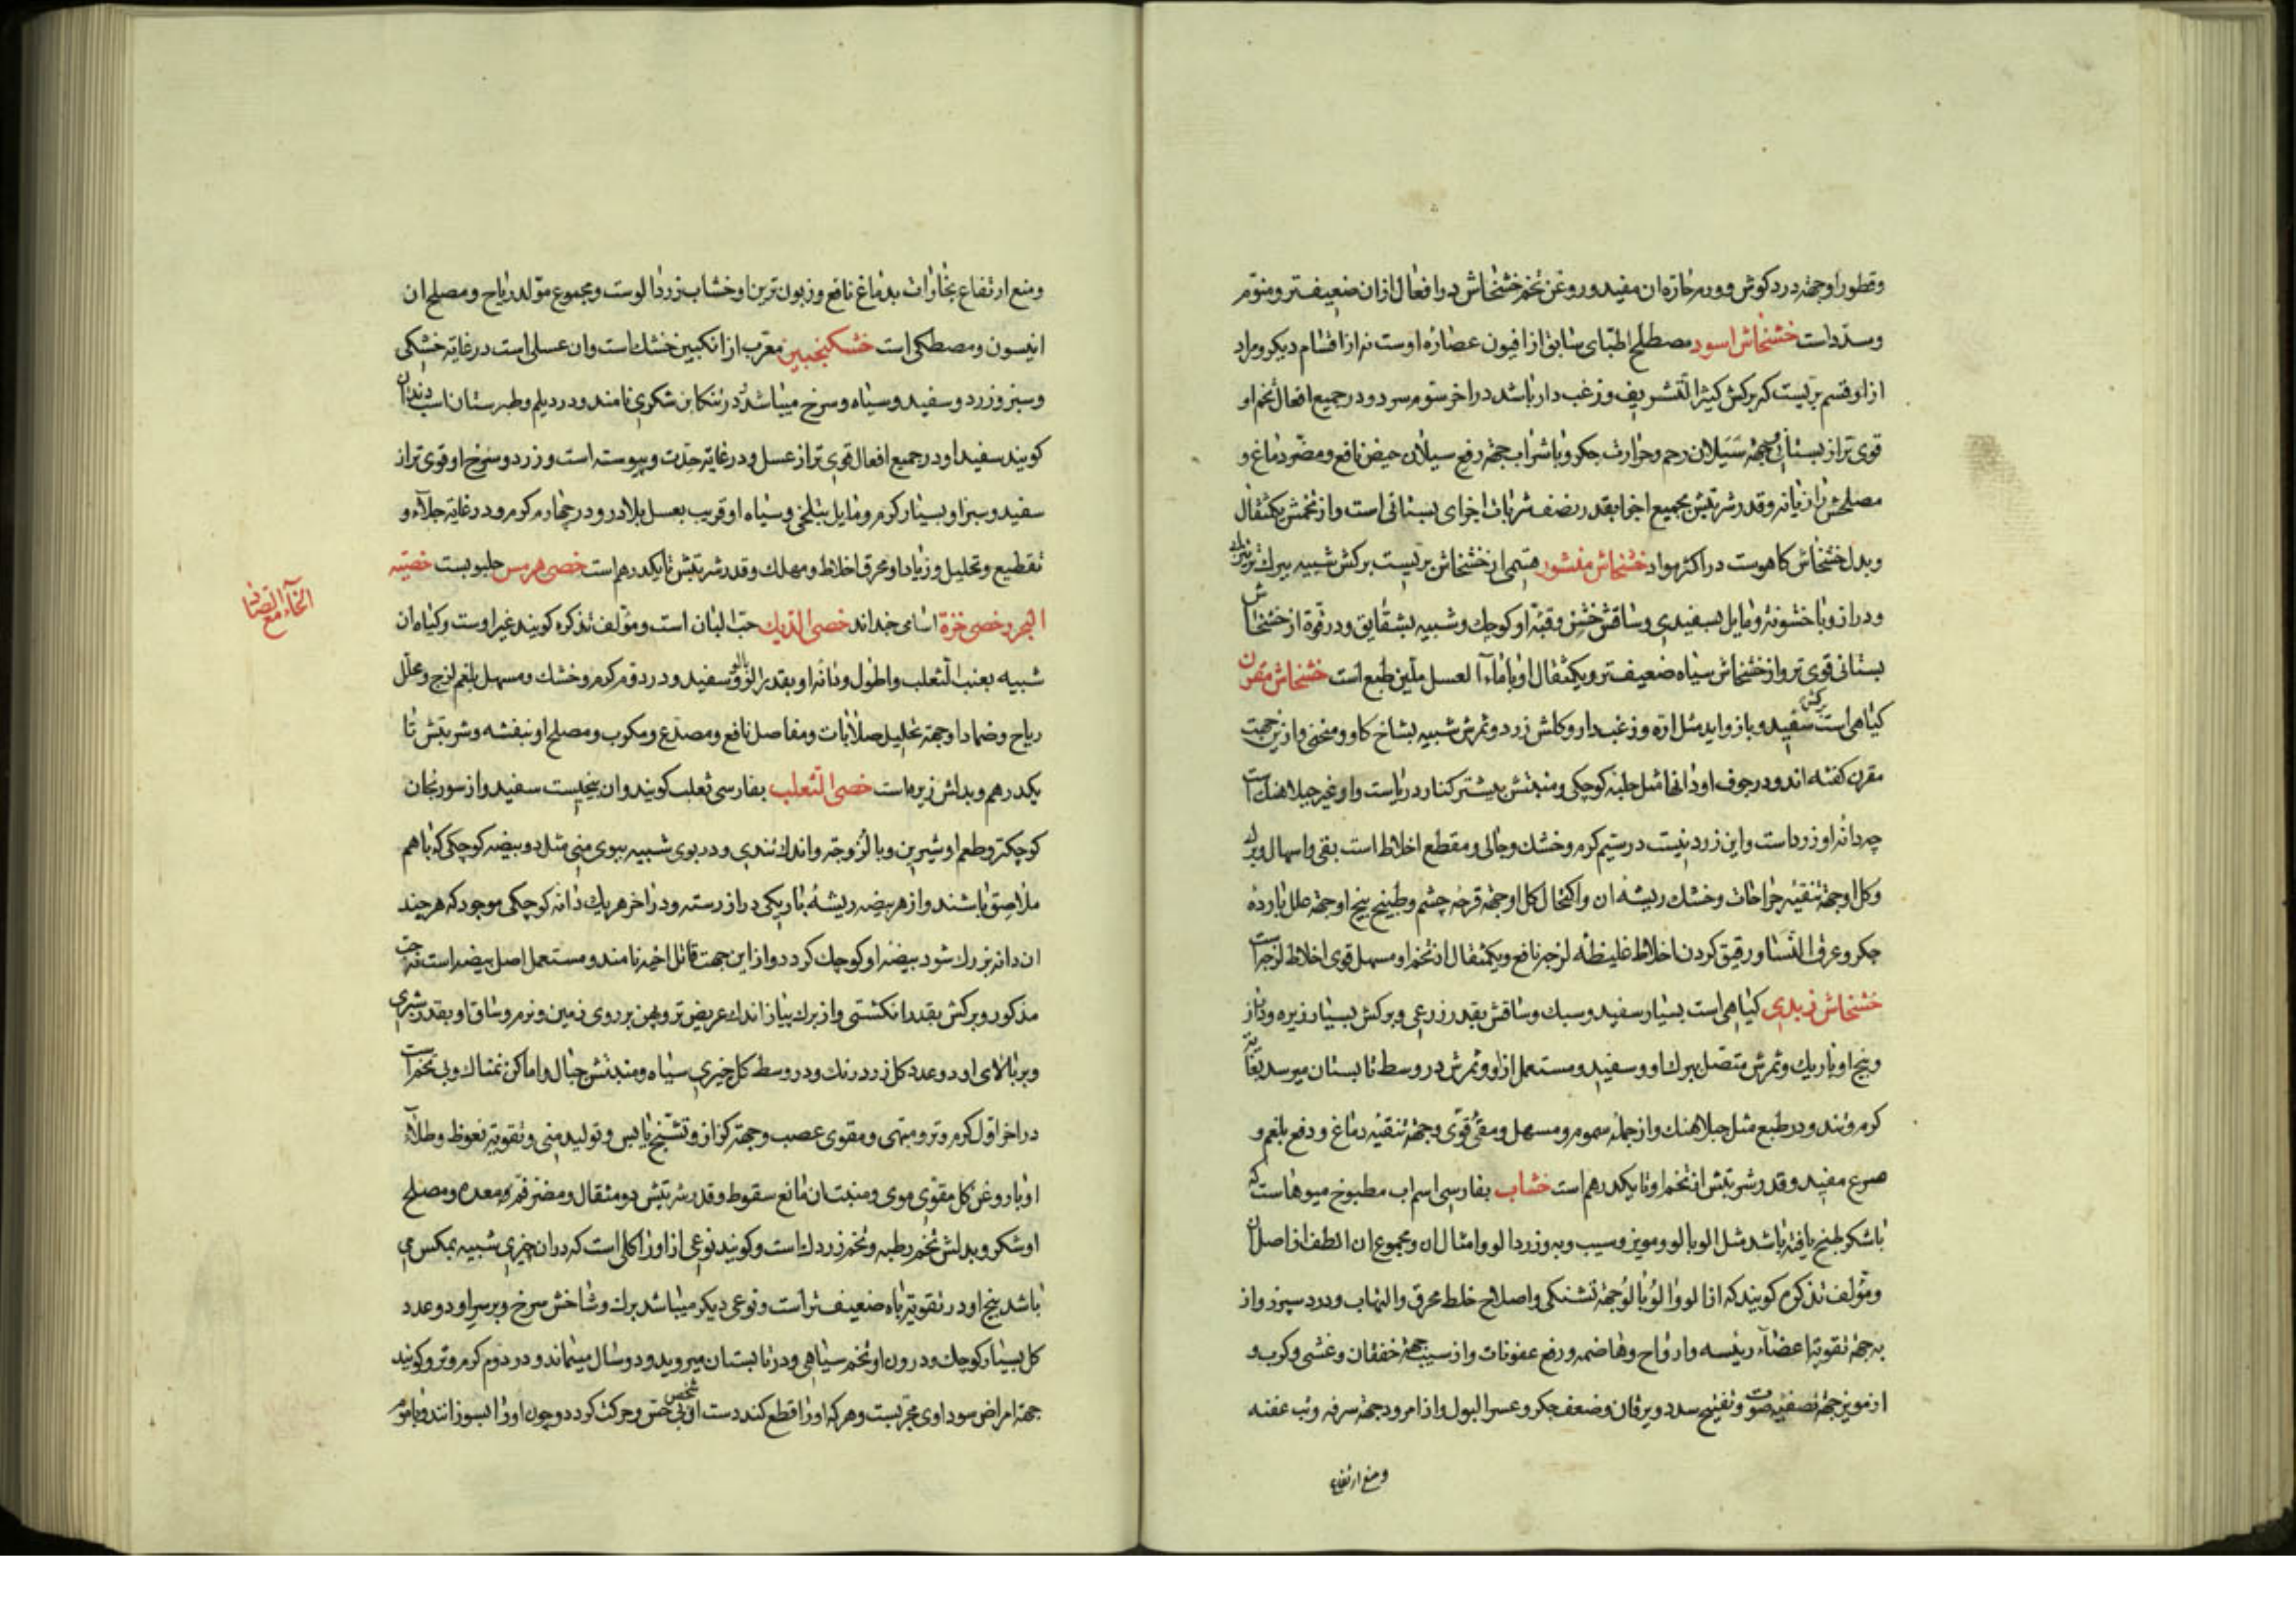 وقطور او جهة درد کوش و ورم حاره ان مفید و روغن تخم خشخاش در افعال از ان ضعیف تر و منوم
و مسدد است خشخاش اسود مصطلح اطبای سابق از افیون عصاره اوست نه از اقسام دیکر و مراد
از او قسم بریست که برکش کثیر التشریف و زغب دار باشد در اخر سوم سرد و در جمیع افعال تخم او
قوی تر از بستانی و جهة سیلان رحم و حرارت جکر و با شراب جهة رفع سیلان حیض نافع و مضر دماغ و
مصلحش رازیانه و قدر شربتش بجمیع اجزا بقدر نصف شربات اجزای بستانی است و از تخمش یکثقال
و بدل خشخاش کاهوست در اکثر مواد خشخاش منشور قسمی از خشخاش بریست برکش شبیه ببرک
و دراز و با خشونة و مایل بسفیدی و ساقش خشن و قبه او کوچک و شبیه بشقایق و در قوة از خشخاش
بستانی قوی تر و از خشخاش سیاه ضعیف تر و یکثقال او با ماء العسل ملین طبع است خشخاش مقرن
کیاهی است برکش سفید و باز واید مثل اره و زغب دار و کلش زرد و ثمرش شبیه بشاخ کاو و منحنی و از ین جهت
مقرن کفته اند و در جوف او دانها مثل حلبه کوچکی و منبتش بیشتر کنار دریاست و او غیر جبلاهنک است
چه دانه او زرد است و این زرد نیست در سیم کرم و خشک و جالی و مقطع اخلاط است بقی و اسهال و برک
و کل او جهة تنقیه جراحات و خشک ریشه ان و اکتحال کل او جهة قرحه چشم و طبیخ بیخ او جهة علل بارده
جکر و عرق النسا و رقیق کردن اخلاط غلیظه لزجه نافع و یکثقال از تخم او مسهل قوی اخلاط لزجه است
خشخاش زبدی کیاهی است بسیار سفید و سبک و ساقش بقدر زرعی و برکش بسیار ریزه و دراز
و بیخ او باریک و ثمرش متصل ببرک او و سفید و مستعمل از او و ثمرش در وسط تابستان میرسد بغایة
کرم و تند و در طبع مثل جبلاهنک و از جمله سموم و مسهل و مقئ قوی و جهة تنقیه دماغ و دفع بلغم و
صرع مفید و قدر شربتش از تخم او تا یکدرهم است خشاب بفارسی اسم اب مطبوخ میوهاست که
با شکر طبخ یافته باشد مثل الو بالو و مویز و سیب و به و زردالو و امثال ان و مجموع ان الطف از اصل ان
و مؤلف تذکره کویند که از الو و الو بالو جهة تشنکی و اصلاح خلط محرق و التهاب و درد سپرز و از
به جهة تقویة اعضاء رئیسه و ارواح و هاضمه و رفع عفونات و از سیب جهة خفقان و غشی و کرب و
از مویز جهة تصفیه صوت و تفتیح سدد و یرقان و ضعف جکر و عسر البول و از امرود جهة سرفه و تب عفنه
و منع ارتفاع
و منع ارتفاع بخارات بدماغ نافع و زبون ترین او خشاب زردالوست و مجموع مولد ریاح و مصلح ان
انیسون و مصطکی است خشکنجبین معرب از انکبین خشک است و ان عسلی است در غایة خشکی
و سبز و زرد و سفید و سیاه و سرخ میباشد در تنکابن شکری نامند و در دیلم و طبرستان اسب دندان
کویند سفید او در جمیع افعال قوی تر از عسل و در غایة حدت و یبوسة است و زرد و سرخ او قوی تر از
سفید و سبز او بسیار کرم و مایل بتلخی و سیاه او قریب بعسل بلادر و در چهارم کرم و در غایة جلاء و
تقطیع و تحلیل و زیاد او محرق اخلاط و مهلک و قدر شربتش تا یکدرهم است خصی هرمس حلبوبست خصیة
الخاء مع الصاد
البحر و خصی خزة اسامی جداند خصی الدیک حب البان است و مؤلف تذکره کویند غیر اوست و کیاه ان
شبیه بعنب الثعلب و اطول و دانه او بقدر الو و سفید و در دوم کرم و خشک و مسهل بلغم لزج و محلل
ریاح و ضماد او جهة تحلیل صلابات و مفاصل نافع و مصدع و مکرب و مصلح او بنفشه و شربتش تا
یکدرهم و بدلش زیره است خصی الثعلب بفارسی ثعلب کویند و ان بیخیست سفید و از سورنجان
کوچکتر و طعم او شیرین و با لزوجة و اندک تندی و در بوی شبیه ببوی منی مثل دو بیضه کوچکی که باهم
ملاصق باشند و از هر بیضه ریشه باریکی دراز رسته و در اخر هر یک دانه کوچکی موجود که هر چند
ان دانه بزرک شود بیضه او کوچک کردد و از این جهت قاتل اخیه نامند و مستعمل اصل بیضه است نه حب
مذکور و برکش بقدر انکشتی و از برک پیاز اندک عریض تر و پهن بر روی زمین و نرم و ساق او بقدر شبری
و بر بالای او دو عدد کل زرد رنک و در وسط کل چیزی سیاه و منبتش جبال و اماکن نمناک و بی تخم است
در اخر اول کرم و تر و مبهی و مقوی عصب و جهة کزاز و تشنج یابس و تولید منی و تقویة نعوظ و طلاء
او با روغن کل مقوی موی و منبت ان مانع سقوط و قدر شربتش دو مثقال و مضر فم معده و مصلح
او شکر و بدلش تخم رطبه و تخم زردک است و کویند نوعی از او را کلی است که در ان چیزی شبیه بمکس می
باشد بیخ او در تقویة باه ضعیف تر است و نوعی دیکر میباشد برک و شاخش سرخ و بر سر او دو عدد
کل بسیار کوچک و درون او تخم سیاهی و در تابستان میروید و دو سال میماند و در دوم کرم و تر و کویند
جهة امراض سوداوی مجربست و هر که او را قطع کند دست ان شخص بی حس و حرکت کردد و چون او را بسوزانند و با موم